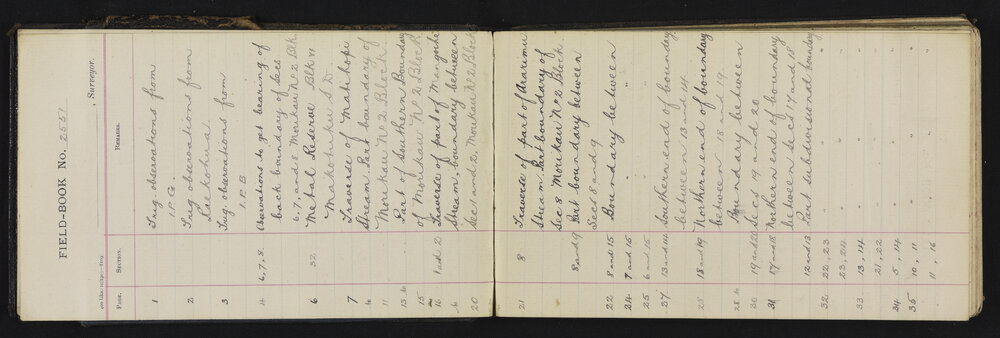 FIELD-BOOK No. 2551
, Surveyor.
PAGE. SECTION. REMARKS.
1 Trig observations from
I.P.G.
2 Trig observations from
Raekohua
3 Trig observations from
I.P.B
4 6, 7, 8. Observations to get bearing of
back boundary of Secs
6, 7, and 8 Morikau No 2 Blk.
6 32 Metal Reserve Blk VI
Makotuku S.D.
7 Traverse of Mahihopi
to Stream Part boundary of
11 Morikau No 2 Block
13 to Part of Southern Boundary
15 of Morikau No 2 Block.
16 1 and 2 Traverse of part of
to Stream, boundary between
20 Sec 1 and 2, Morikau No 2 Block
21 8 Traverse of part of Ararimu
Stream Part boundary of
Sec 8 Morikau No 2 Block.
8 and 9 Part boundary between
Secs 8 and 9
22 8 and 15 Boundary between
24 7 and 15 " "
25 6 and 15 " "
27 13 and 14 Southern end of boundary
between 13 and 14
28 18 and 19 Northern end of boundary
between 18 and 19.
28 to Boundary between
30 19 and 20 Secs 19 and 20
31 17 and 18 Northern end of boundary
between Secs 17 and 18
12 and 13 Part subdivisional boundary
32 22, 23 " "
23, 24 " "
33 13, 14 " "
21, 22 " "
34 5, 14 " "
35 10, 11 " "
11, 16 " "